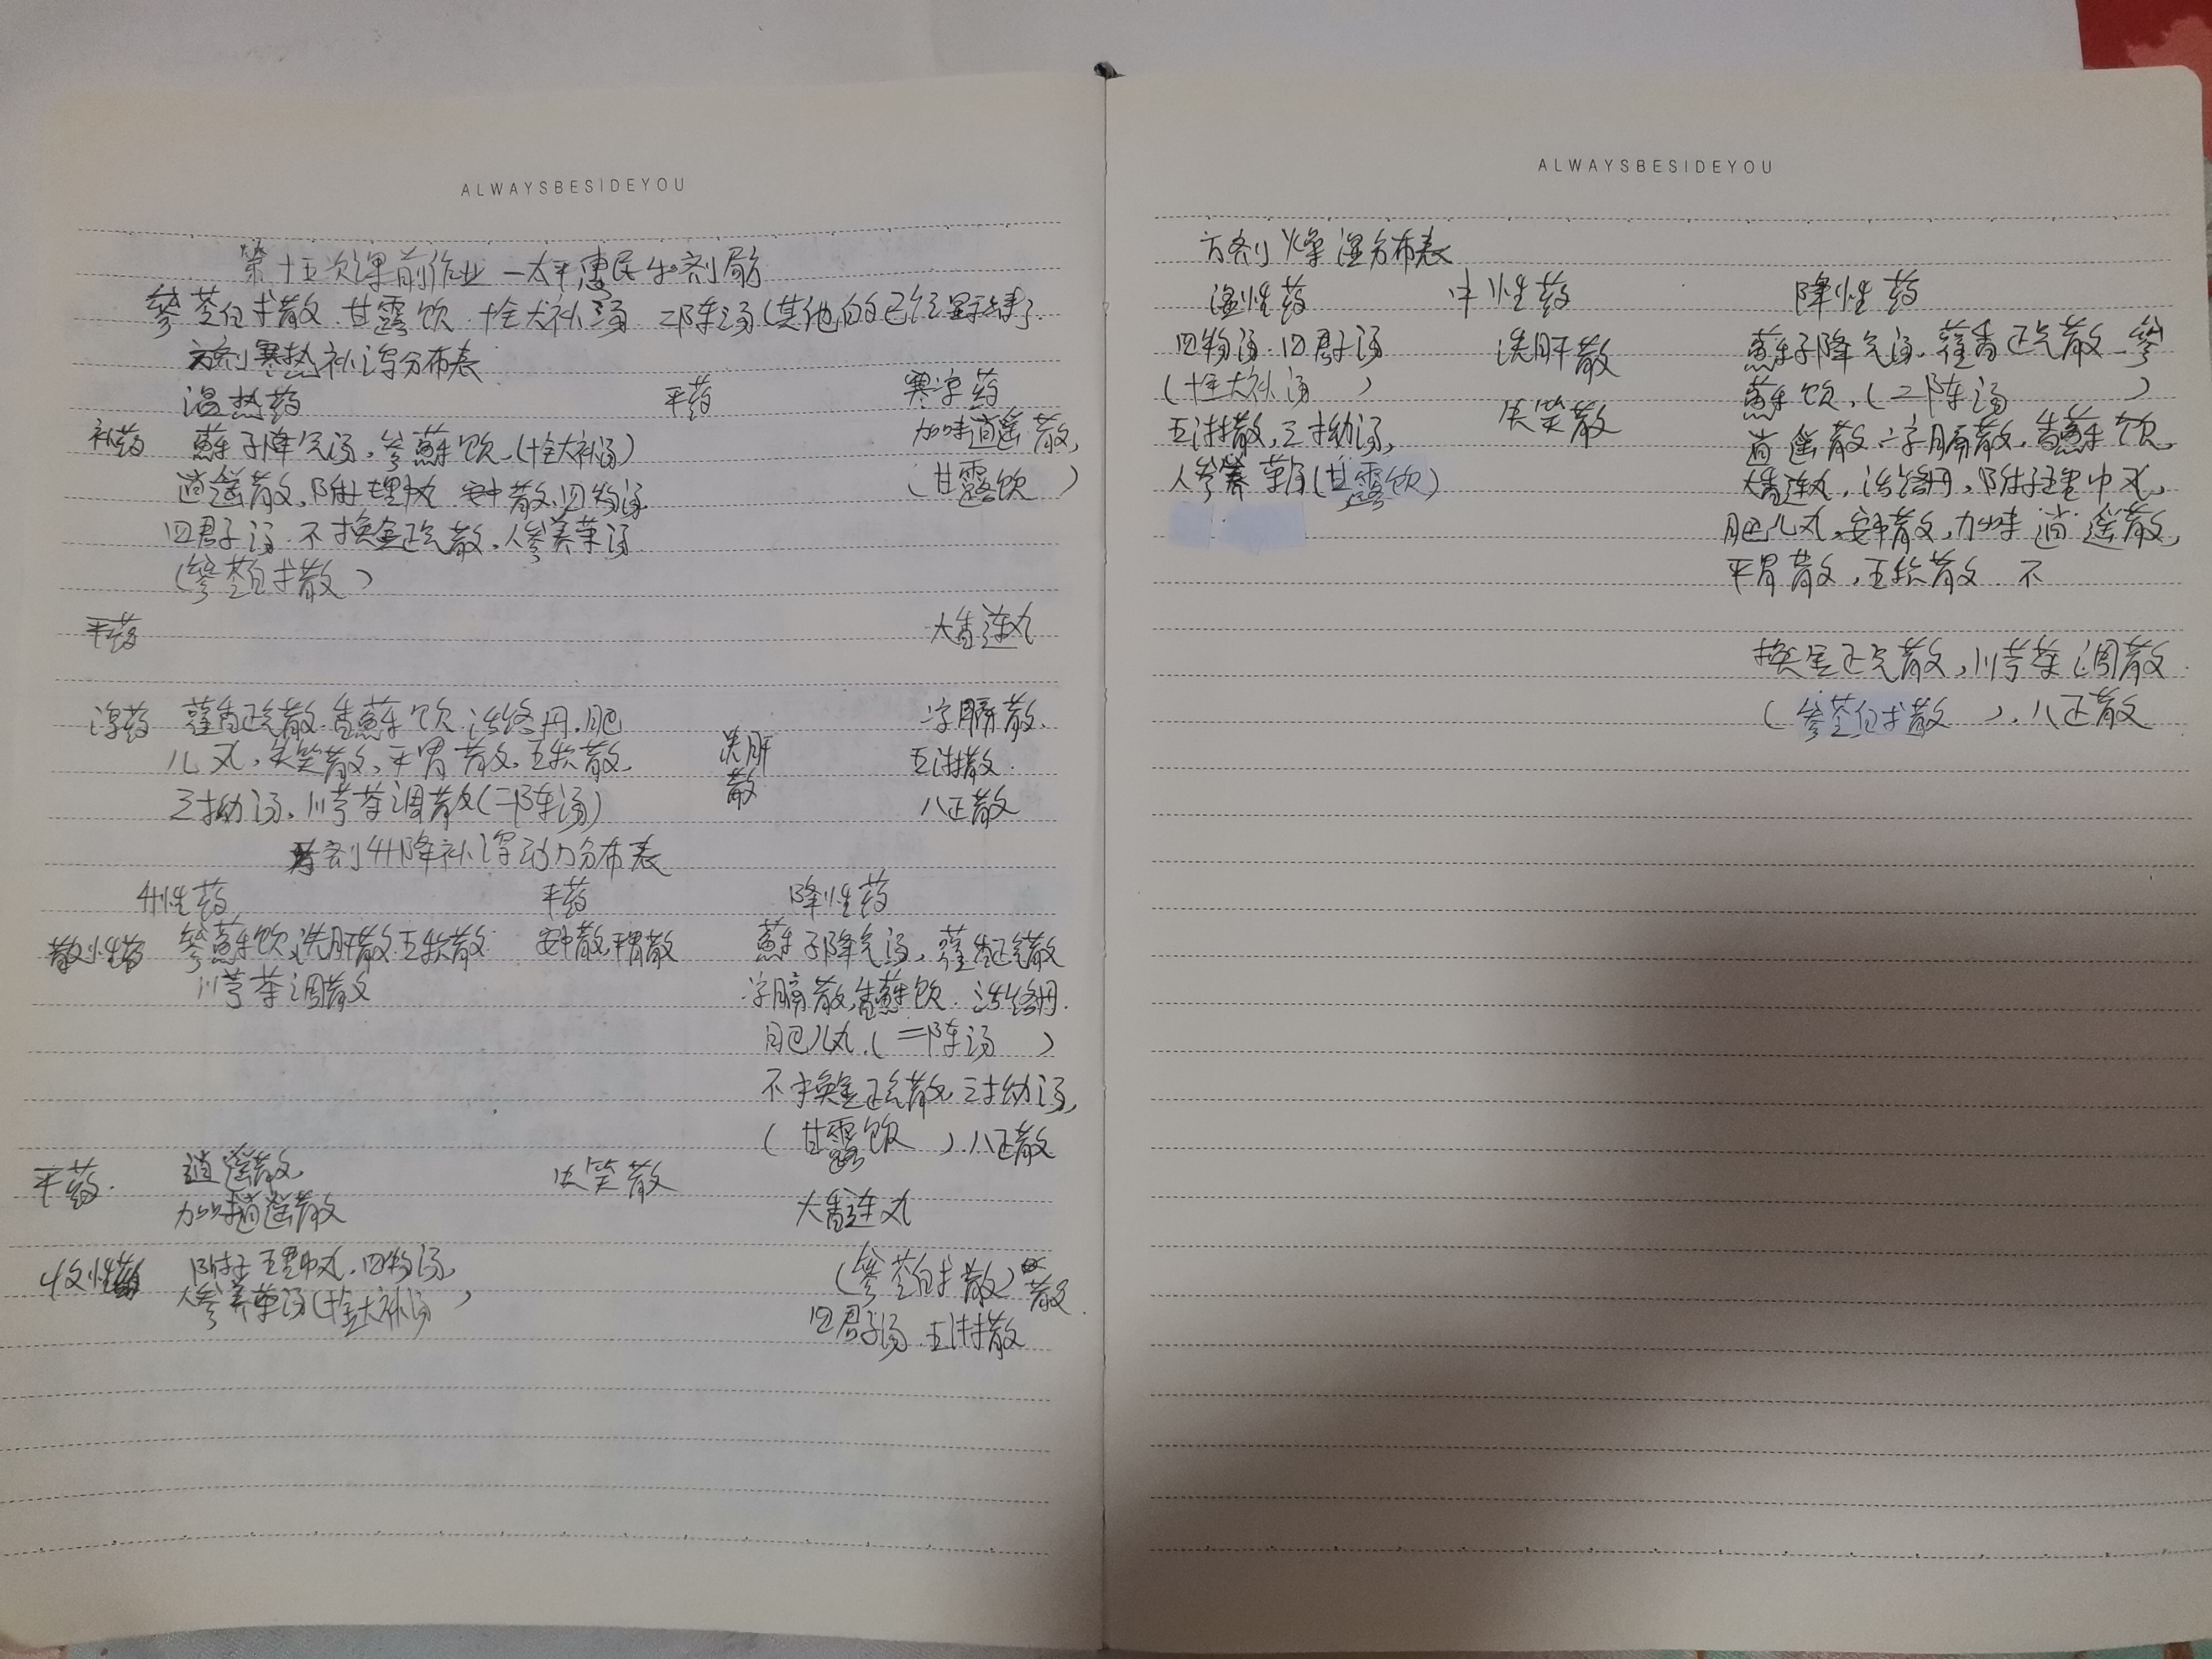 ALWAYSBESIDEYOU
第十五次课前作业—太平惠民和剂局方
參苓白术散.甘露饮.十全大补汤 二陈汤(其他的已经
方剂寒热补泻分布表
温热药 平药 寒凉药
补药 蘇子降气汤,參蘇饮,(十全大补汤) 加味逍遥散,
逍遥散,附子理中丸 安中散.四物汤 (甘露饮)
四君子汤.不换金正气散,人參养荣汤
(參苓白术散)
平药 大香连丸
泻药 藿香正气散.香蘇饮.活络丹.肥 洗肝 凉膈散.
儿丸,失笑散,平胃散.五积散, 散 五淋散.
三拗汤,川芎茶调散(二陈汤) 八正散
方剂升降补泻动力分布表
升性药 平药 降性药
散性药 參蘇饮,洗肝散.五积散 安中散,平胃散 蘇子降气汤,藿香正气散
川芎茶调散 凉膈散,香蘇饮.活络丹.
肥儿丸.(二陈汤)
不换金正气散,三拗汤,
(甘露饮).八正散
平药. 逍遥散, 失笑散
加味逍遥散 大香连丸
收性药 附子理中丸.四物汤, (參苓白术散) 散.
人參养荣汤(十全大补汤) 四君子汤.五淋散
ALWAYSBESIDEYOU
方剂燥湿分布表
湿性药 中性药 降性药
四物汤.四君子汤 洗肝散 蘇子降气汤,藿香正气散.參
(十全大补汤) 失笑散 蘇饮,(二陈汤)
五淋散,三拗汤, 逍遥散.凉膈散.香蘇饮,
人參养荣汤(甘露饮) 大香连丸,活络丹,附子理中丸,
肥儿丸,安中散,加味逍遥散,
平胃散,五积散.不
换金正气散,川芎茶调散.
(參苓白术散).八正散